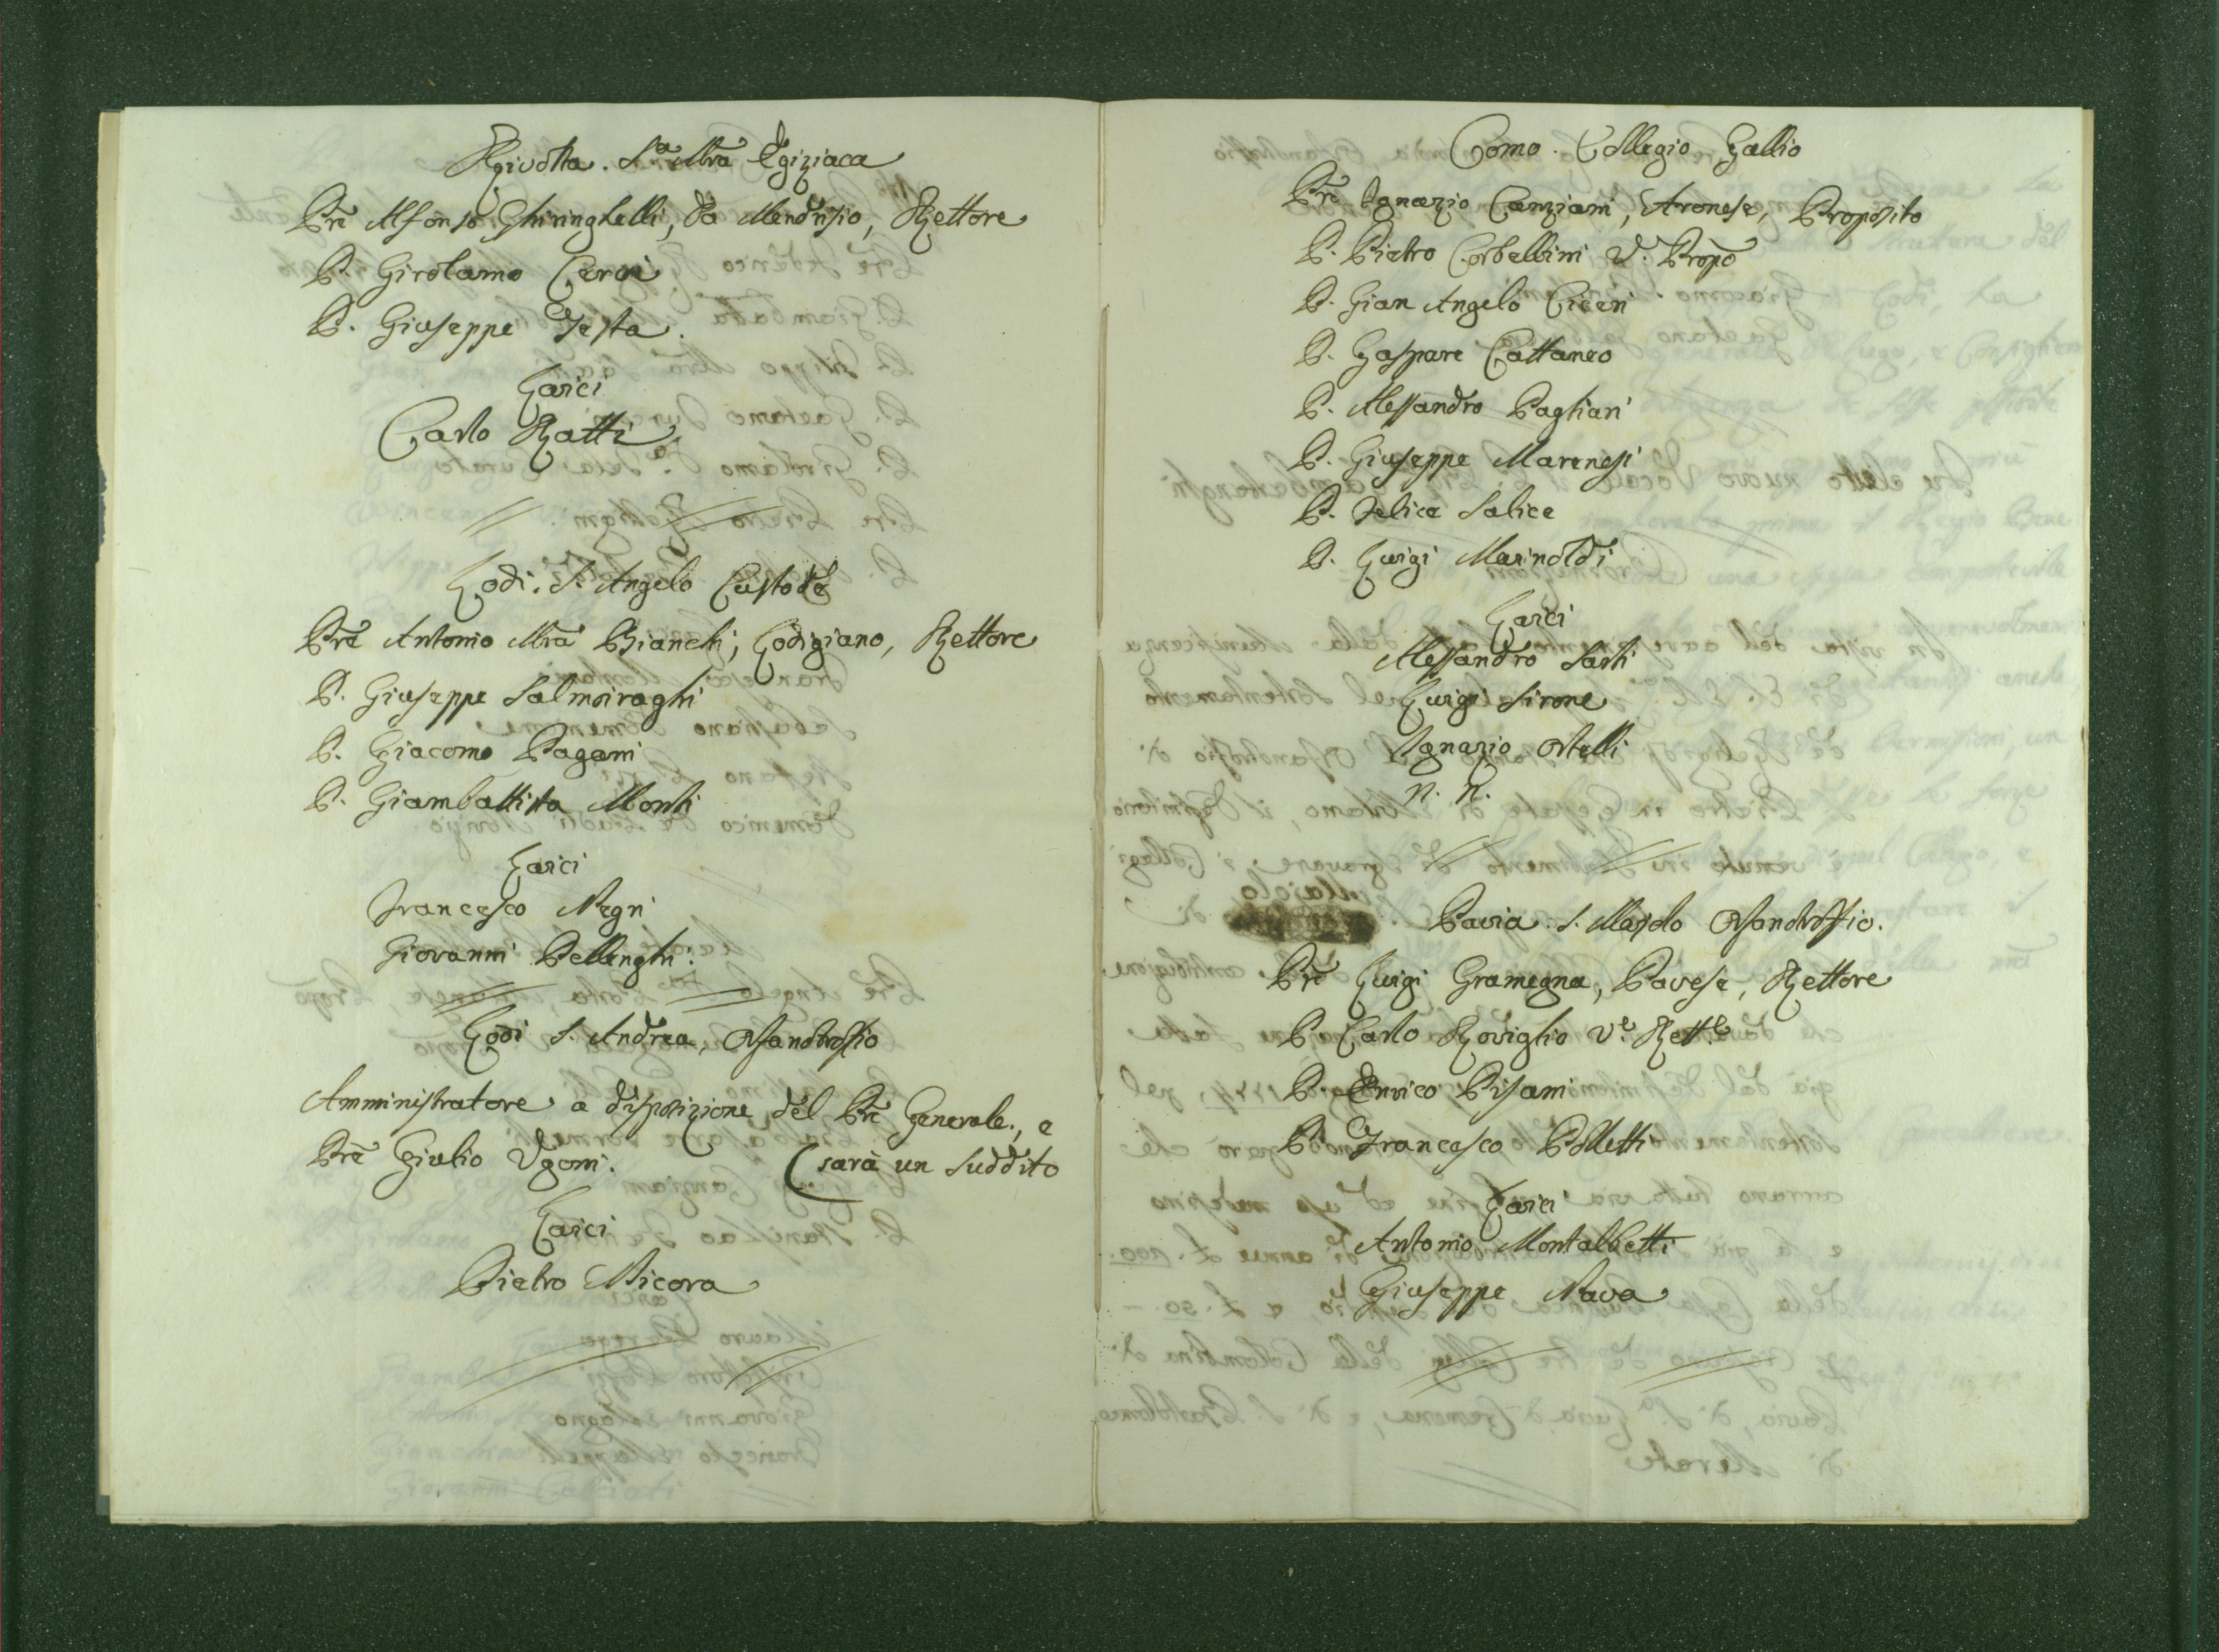 Rivolta. S.a Mra Egiziaca
Prē Alfonso Ghiringhelli, da Mendrisio, Rettore
P. Girolamo Ceroi
P. Giuseppe Testa.
Laici
Carlo Ratti
Lodi. S. Angelo Custode
Prē Antonio Mra Bianchi, Lodigiano, Rettore
P. Giuseppe Salmoiraghi
P. Giacomo Pagani
P. Giambattista Monti
Laici
Francesco Negri
Giovanni Bellinghi.
Lodi S. Andrea, Orfanotroffio
Amministratore a disposizione del Prē Generale, e
Prē Giulio Ugoni. (sarà un suddito
Laici
Pietro Micora
Como. Collegio Gallio
Prē Ignazio Canziani, Aronese, Proposito
P. Pietro Corbellini V. Propō
P. Gian Angelo Ciceri
P. Gaspare Cattaneo
P. Alessandro Pagliari
P. Giuseppe Marenesi
P. Felice Salice
P. Luigi Marinoldi
Laici
Alessandro Sarti
Luigi Sirone
Ignazio Ortelli
N. N.
Majolo
Pavia. S. Majolo Orfanotroffio.
Prē Luigi Gramegna, Pavese, Rettore
P. Carlo Roviglio Ve. Rett.e
P. Enrico Pisani
P. Francesco Polletti
Laici
Antonio Montalbetti
Giuseppe Nava